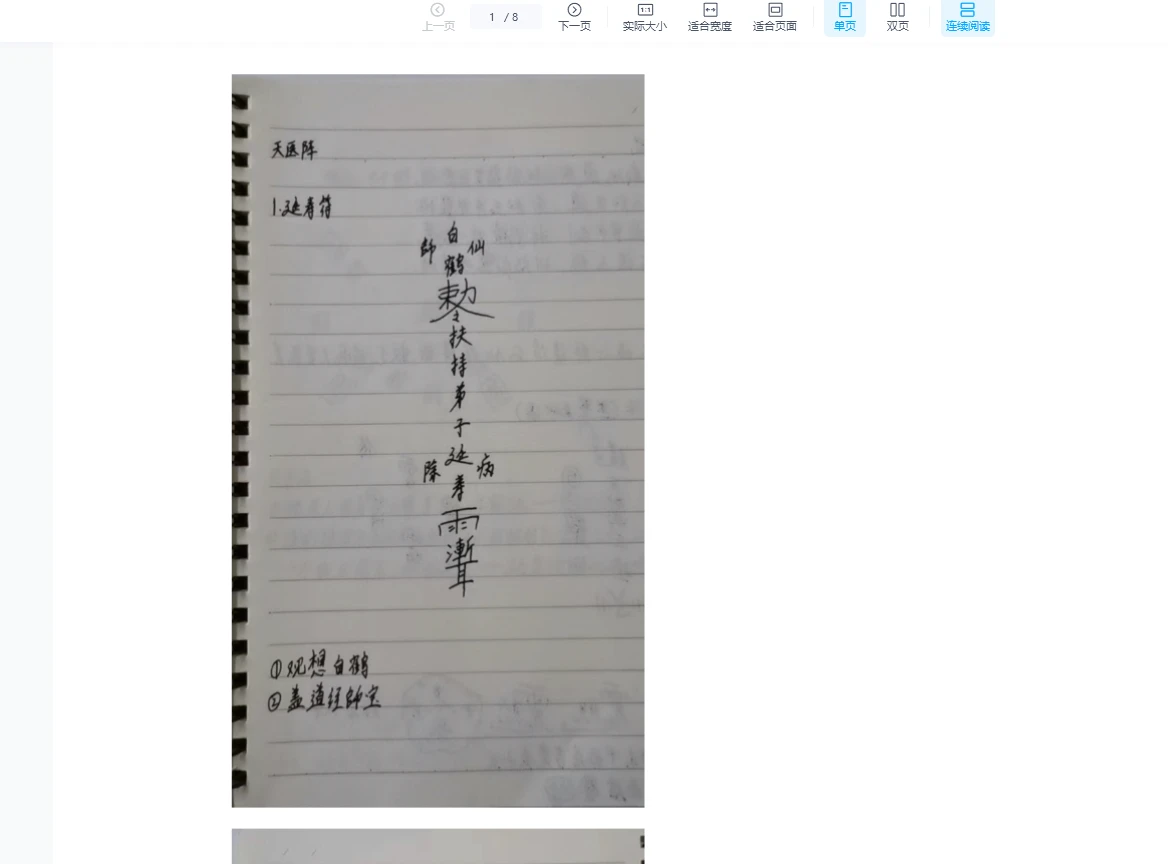 上一页
1 / 8
下一页
1:1
实际大小
适合宽度
适合页面
单页
双页
连续阅读
天医阵
1.延寿符
白鹤
師 仙
敕令
扶持弟子延寿
除 病
雨漸耳
①观想白鹤
②盖道经師宝